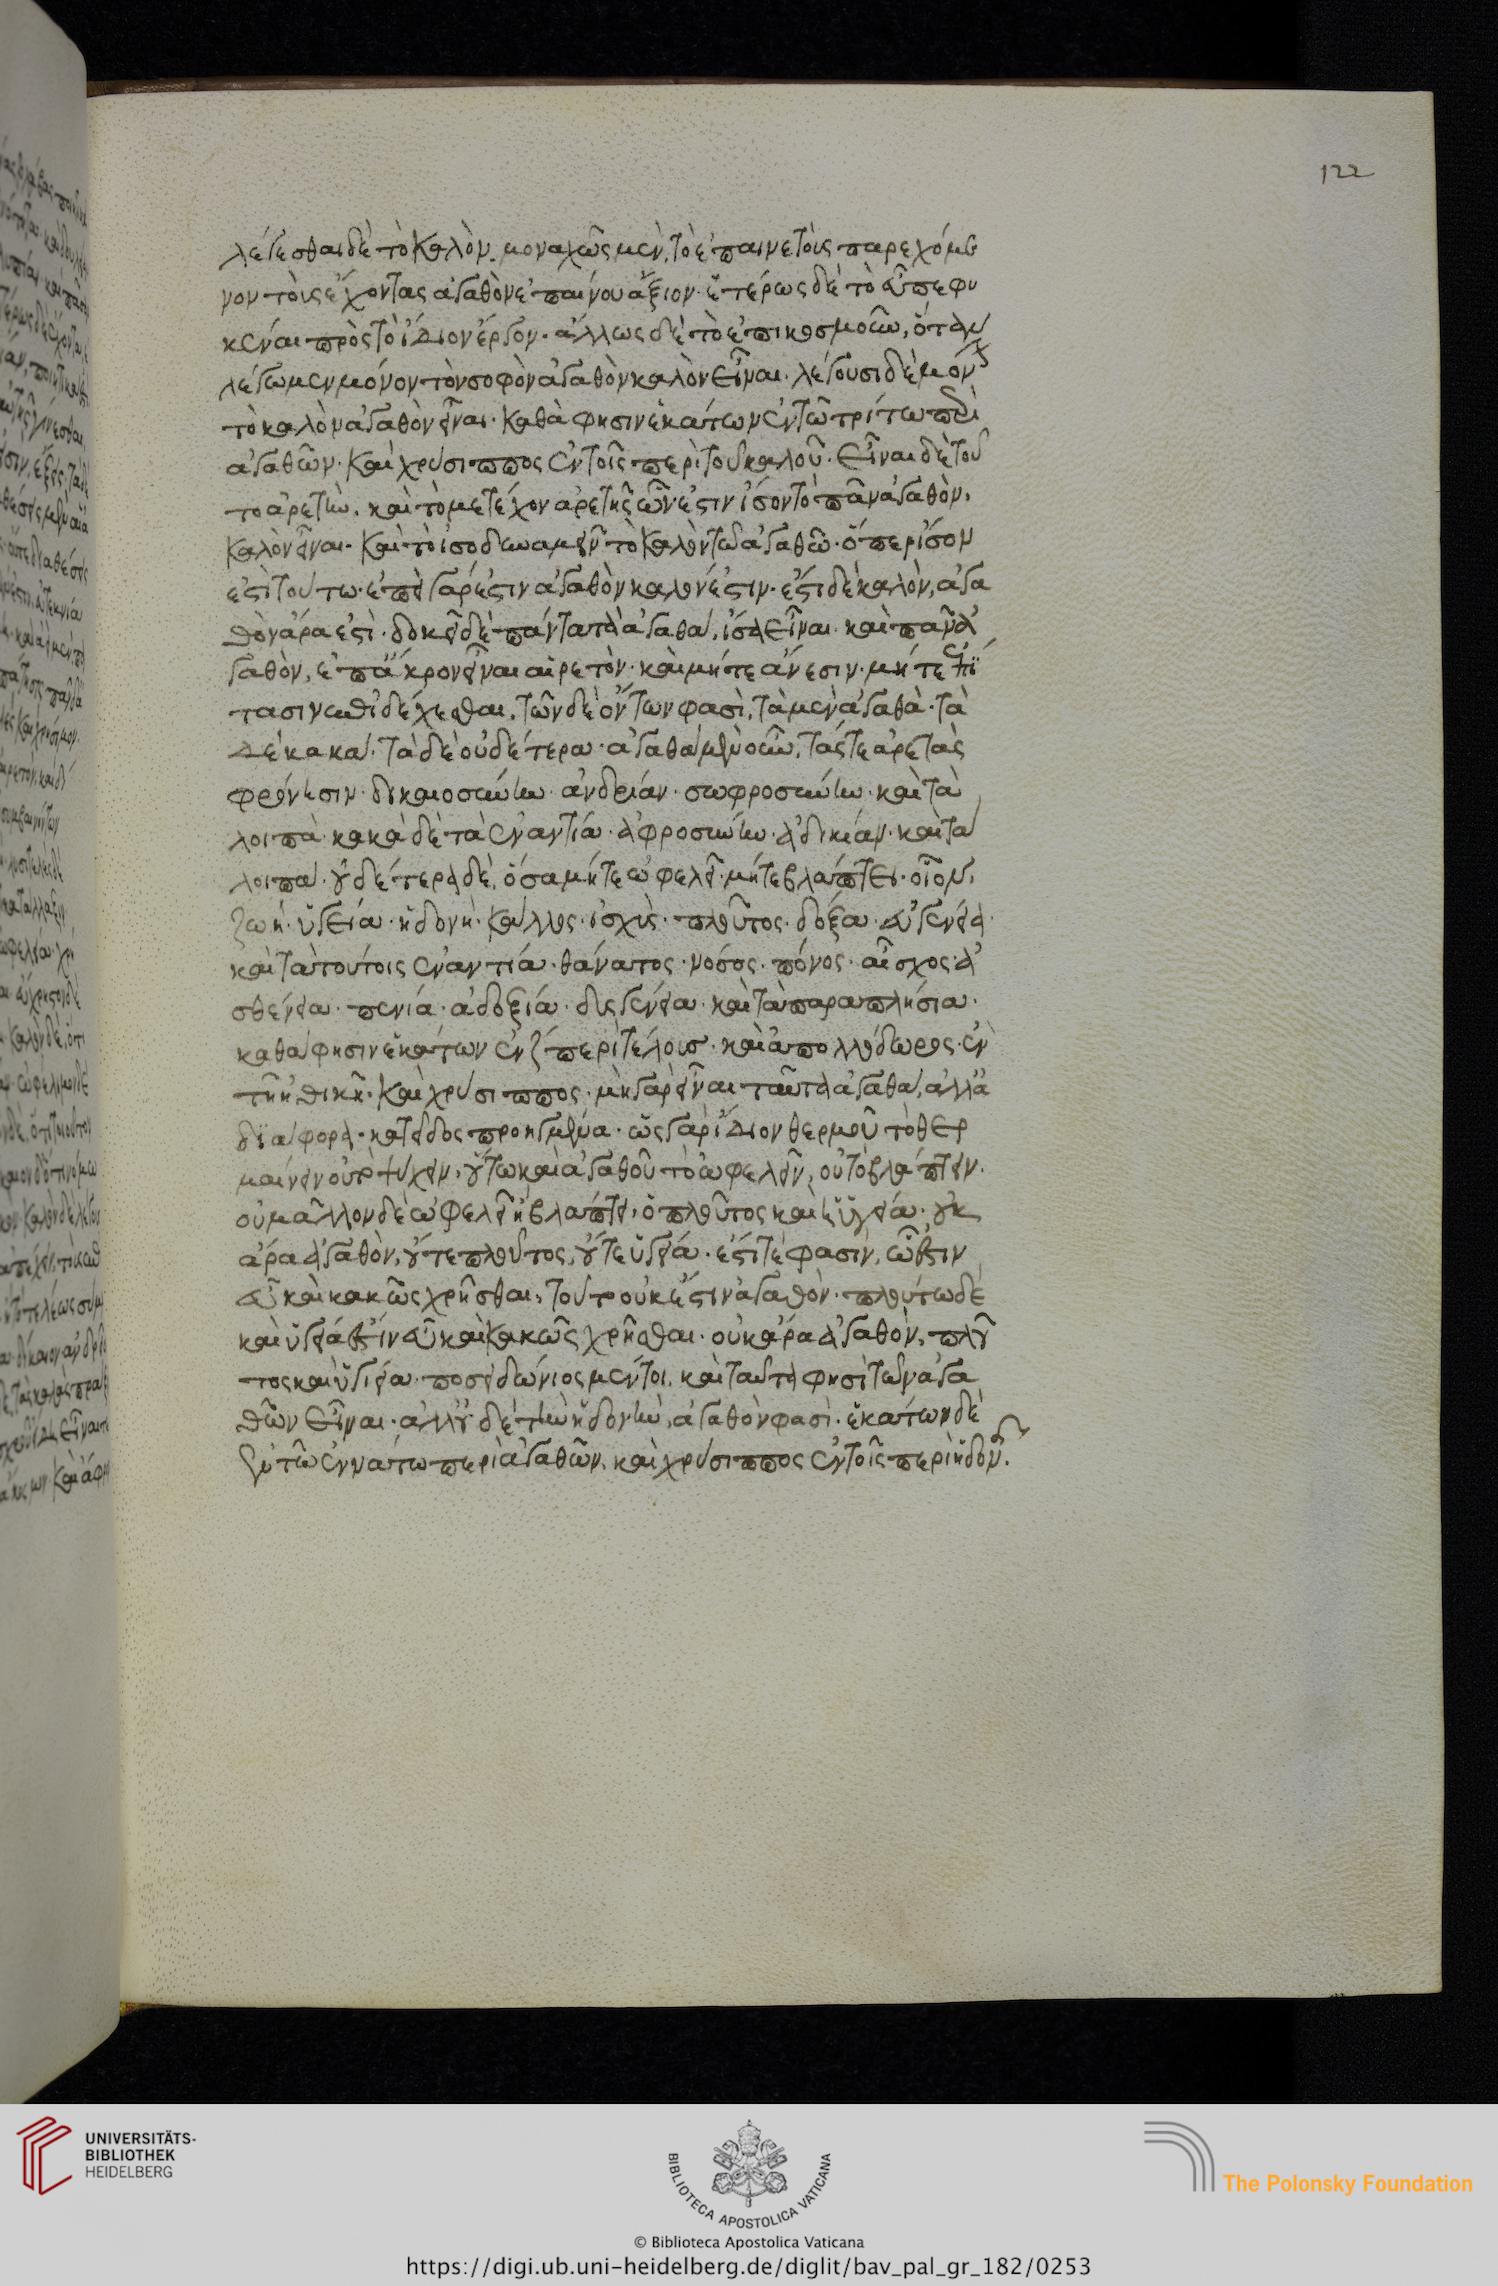 122
λέγεσθαι δὲ τὸ καλὸν. μοναχῶς μὲν, τὸ ἐπαινετοὺς παρεχόμε
νον τοὺς ἔχοντας ἀγαθὸν ἐπαίνου ἄξιον· ἑτέρως δὲ τὸ εὖ πεφυ
κέναι πρὸς τὸ ἴδιον ἔργον· ἄλλως δὲ τὸ ἐπικοσμοῦν, ὅταν
λέγωμεν μόνον τὸν σοφὸν ἀγαθὸν καλὸν εἶναι. λέγουσι δὲ μόν
τὸ καλὸν ἀγαθὸν εἶναι· καθὰ φησιν ἑκάτων ἐν τῶ τρίτω περὶ
ἀγαθῶν· καὶ χρύσιππος ἐν τοῖς περὶ τοῦ καλοῦ· εἶναι δὲ τοῦ
το ἀρετὴν. καὶ τὸ μετέχον ἀρετῆς ὧν ἐστιν ἴσον τὸ πᾶν ἀγαθὸν,
καλὸν εἶναι· καὶ τὸ ἰσοδυναμεῖν τὸ καλὸν τῶ ἀγαθῶ· ὅπερ ἴσον
ἐστὶ τούτω· ἐπεὶ γάρ ἐστιν ἀγαθὸν καλόν ἐστιν· ἔστι δὲ καλὸν, ἀγα
θὸν ἄρα ἐστὶ· δοκεῖ δὲ πάντα τὰ ἀγαθὰ, ἴσα εἶναι· καὶ πᾶν ἀ
γαθὸν, ἐπ' ἄκρον εἶναι αἱρετὸν· καὶ μήτε ἄνεσιν· μήτε ἐπί
τασιν ἐπιδέχεσθαι, τῶν δὲ ὄντων φασὶ, τὰ μὲν ἀγαθὰ· τὰ
δὲ κακὰ· τὰ δὲ οὐδέτερα· ἀγαθὰ μὲν οὖν, τάς τε ἀρετὰς
φρόνησιν· δικαιοσύνην· ἀνδρείαν· σωφροσύνην· καὶ τὰ
λοιπὰ· κακὰ δὲ τὰ ἐναντία· ἀφροσύνην· ἀδικίαν· καὶ τὰ
λοιπὰ· οὐδέτερα δὲ, ὅσα μήτε ὠφελεῖ· μήτε βλάπτει· οἷον,
ζωὴ· ὑγεία· ἡδονὴ· κάλλος· ἰσχὺς· πλοῦτος· δόξα· εὐγένεια·
καὶ τὰ τούτοις ἐναντία· θάνατος· νόσος· πόνος· αἶσχος· ἀ
σθένεια· πενία· ἀδοξία· δυσγένεια· καὶ τὰ παραπλήσια·
καθά φησιν ἑκάτων ἐν ζ περὶ τέλους· καὶ ἀπολλόδωρος· ἐν
τῆ ἠθικῆ· καὶ χρύσιππος· μὴ γὰρ εἶναι ταῦτα ἀγαθὰ, ἀλλὰ
διάφορα· κατ' εἶδος προηγμένα· ὡς γὰρ ἴδιον θερμοῦ τὸ θερ
μαίνειν οὐ τὸ ψύχειν, οὕτω καὶ ἀγαθοῦ τὸ ὠφελεῖν, οὐ τὸ βλάπτειν.
οὐ μᾶλλον δὲ ὠφελεῖ ἢ βλάπτει, ὁ πλοῦτος καὶ ἡ ὑγεία· οὐκ
ἄρα ἀγαθὸν, οὔτε πλοῦτος, οὔτε ὑγεία· ἔτι τέ φασιν, ὧ ἔστιν
εὖ καὶ κακῶς χρῆσθαι, τοῦτο οὐκ ἔστιν ἀγαθὸν· πλούτω δὲ
καὶ ὑγεία ἔστιν εὖ καὶ κακῶς χρῆσθαι· οὐκ ἄρα ἀγαθὸν, πλοῦ
τος καὶ ὑγιεία· ποσειδώνιος μέντοι, καὶ ταῦτά φησι τῶν ἀγα
θῶν εἶναι· ἀλλ' οὐδὲ τὴν ἡδονὴν, ἀγαθὸν φασὶ· ἑκάτων δὲ
ἐν τῶ ἐννάτω περὶ ἀγαθῶν, καὶ χρύσιππος ἐν τοῖς περὶ ἡδον.
UNIVERSITÄTS-
BIBLIOTHEK
HEIDELBERG
BIBLIOTECA APOSTOLICA VATICANA
The Polonsky Foundation
© Biblioteca Apostolica Vaticana
https://digi.ub.uni-heidelberg.de/diglit/bav_pal_gr_182/0253